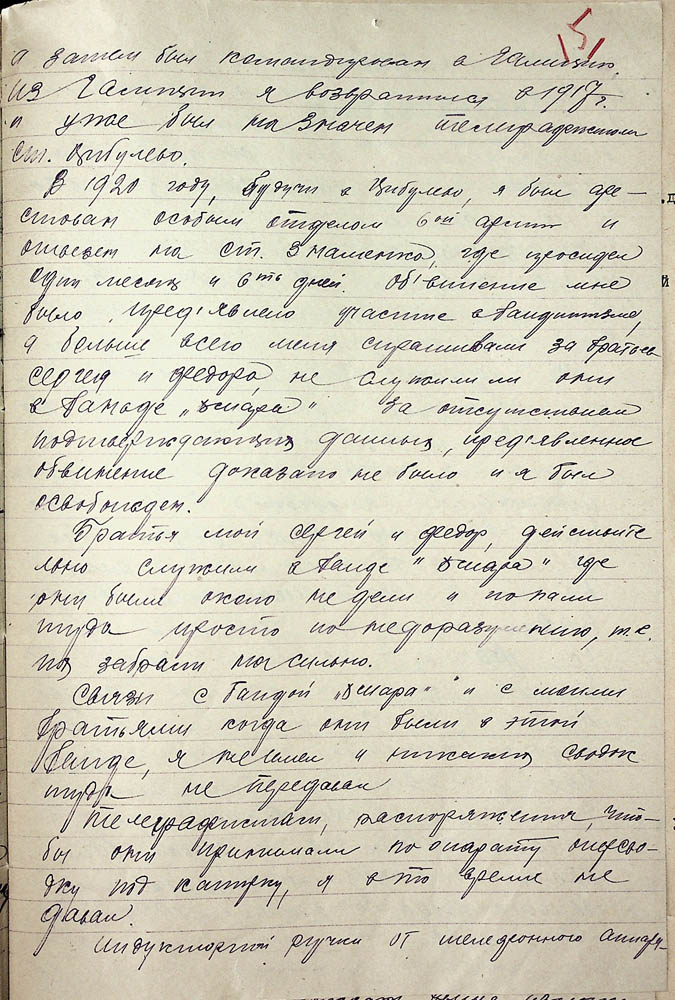 5
а затем был командирован в Галицию,
из Галиции я возвратился в 1917 г.
и уже был назначен телеграфистом
ст. Цибулево.
В 1920 году, будучи в Цибулево, я был аре-
стован особым отделом 6ой армии и
на ст. Знаменка, где просидел
один месяц и 6ть дней. Обвинение мне
было пред'явлено участие в бандитизме,
а больше всего меня спрашивали за братьев
Сергея и Федора не служили ли они
в банде За отсутствием
подтверждающих данных, пред'явленное
обвинение доказано не было и я был
освобожден.
Братья мои Сергей и Федор, действите
льно служили в банде где
они были около недели и попали
туда просто по недоразумению, т.е.
их забрали насильно.
Связи с бандой и с моими
братьями когда они были в этой
банде, я не имел и никаких сводок
туда не передавал
Телеграфистам, распоряжения, что-
бы они принимали по аппарату
под я в то время не
давал.
Индукторной ручки от телефонного аппара-